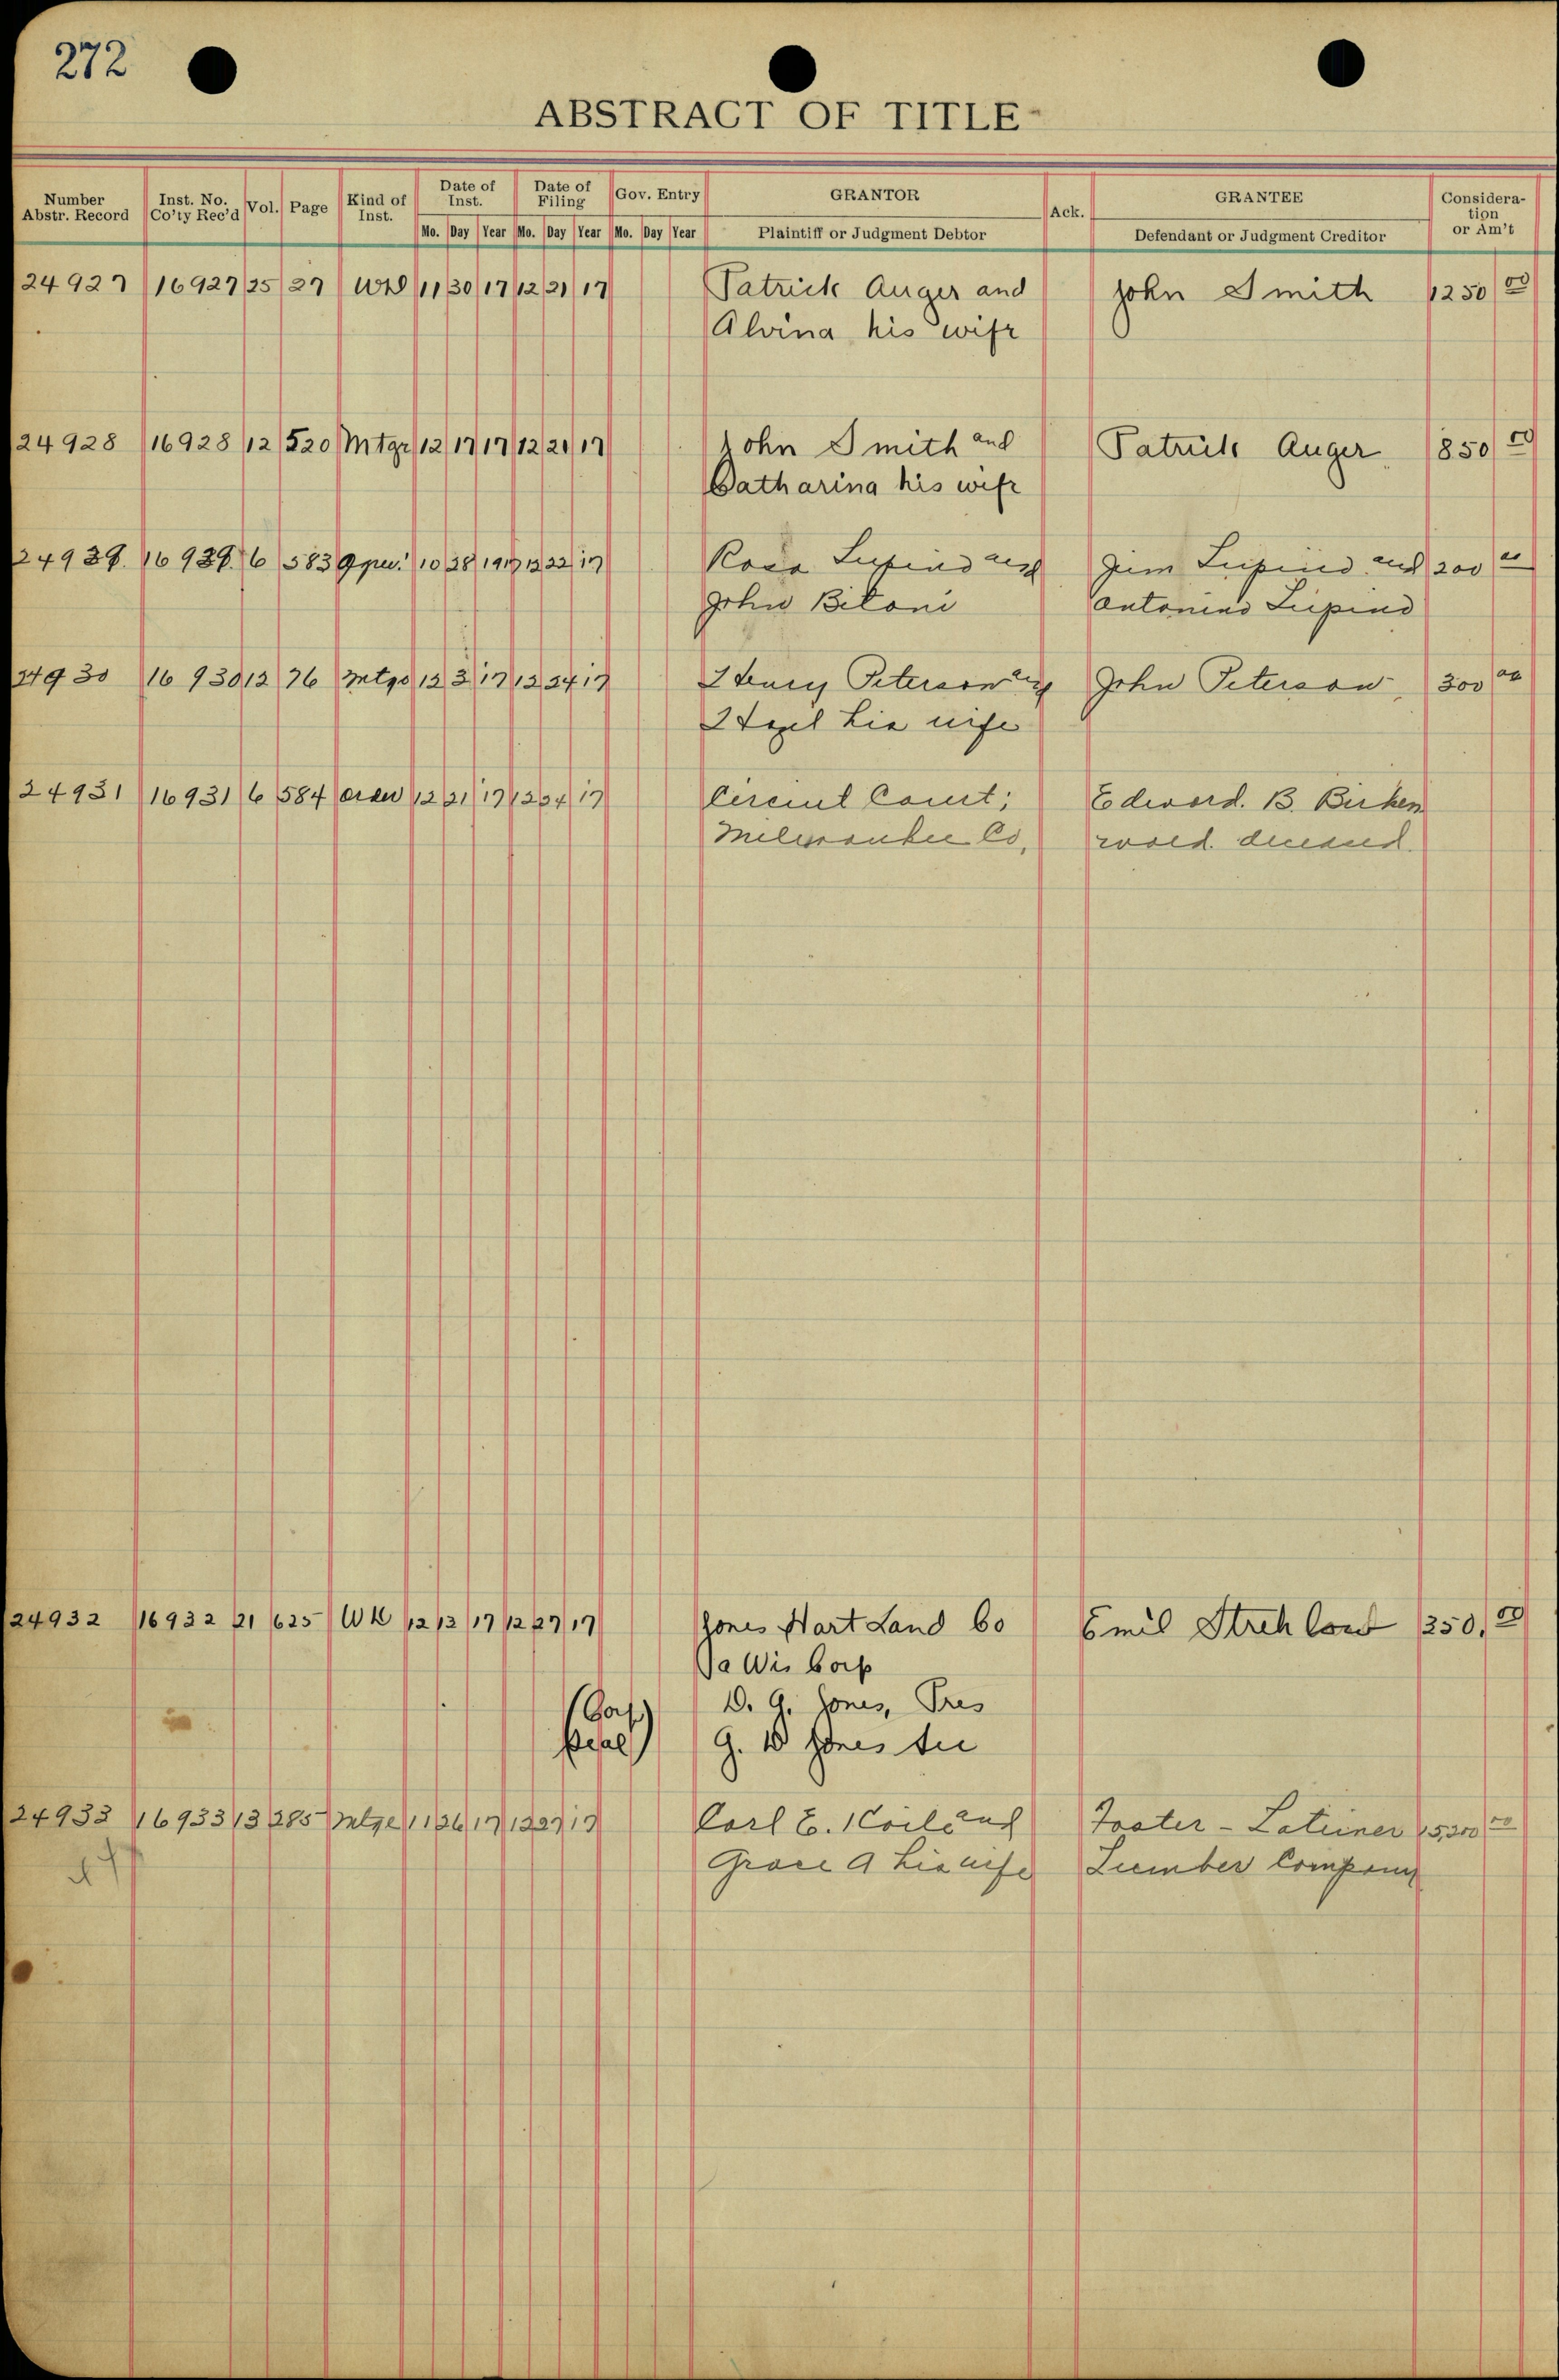 272
ABSTRACT OF TITLE
Number Abstr. Record Inst. No. Co'ty Rec'd Vol. Page Kind of Inst. Date of Inst. Date of Filing Gov. Entry GRANTOR Ack. GRANTEE Consideration or Am't
Mo. Day Year Mo. Day Year Mo. Day Year Plaintiff or Judgment Debtor Defendant or Judgment Creditor
24927 16927 25 27 WD 11 30 17 12 21 17 Patrick Auger and John Smith 1250 00
Alvina his wife
24928 16928 12 520 Mtge 12 17 17 12 21 17 John Smith and Patrick Auger 850 00
Catharina his wife
24929 16929 6 583 10 28 1917 12 22 17 Rosa Lupino and Jim Lupino and 200 00
John Bitoni Antonino Lupino
24930 16930 12 76 Mtge 12 3 17 12 24 17 Henry Peterson and John Peterson 300 00
Hazel his wife
24931 16931 6 584 Order 12 21 17 12 24 17 Circuit Court; Edword. B. Birken
Milwaukee Co. wold. deceased.
24932 16932 21 625 WD 12 13 17 12 27 17 Jones Hart Land Co Emil Strehlow 350.00
a Wis Corp
(Corp) D. G. Jones, Pres
Seal) G. W Jones Sec
24933 16933 13 285 Mtge 11 26 17 12 27 17 Carl E. and Foster-Latimer 15,200 00
Grace A his wife Lumber Company